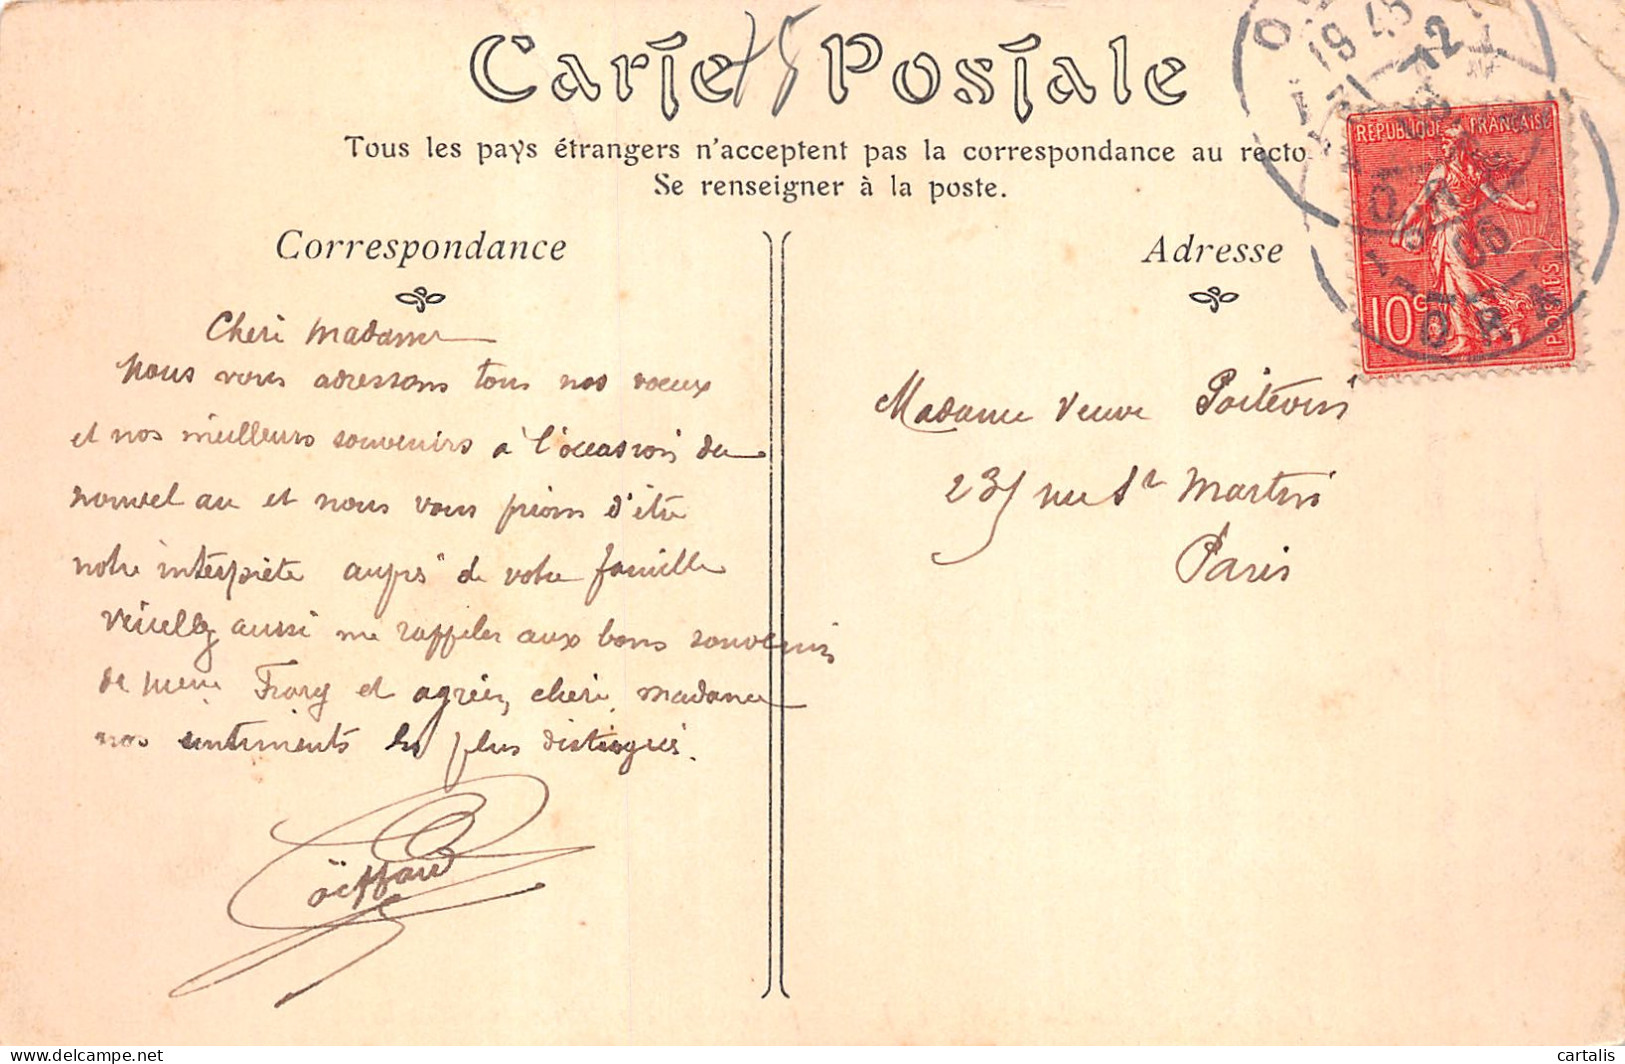 Carte Postale
Tous les pays étrangers n'acceptent pas la correspondance au recto
Se renseigner à la poste.
Correspondance
Adresse
REPUBLIQUE FRANÇAISE
10c
POSTES
19 45
31 12
06
Cheri Madame
Nous vous adressons tous nos voeux
et nos meilleurs souvenirs à l'occasion du
nouvel an et nous vous prions d'être
notre interprète auprès de votre famille
Veuillez aussi me rappeler aux bons souvenirs
de et agréez, cheri madame
nos sentiments les plus distingués.
Madame Veuve Poitevin
23 rue St Martin
Paris
cartalis
www.delcampe.net